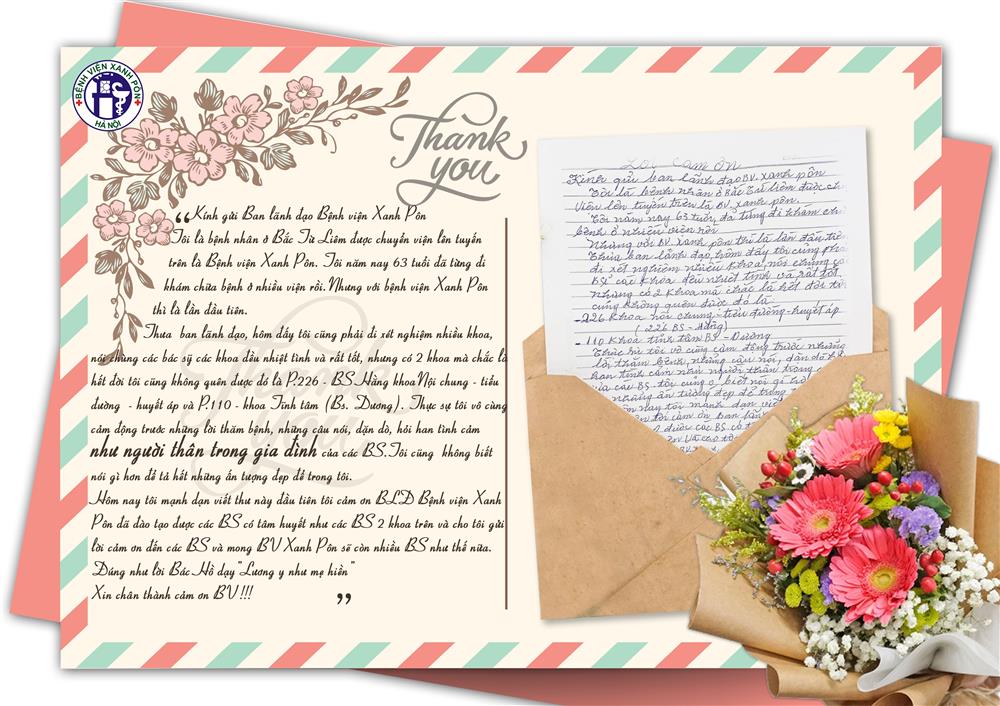 BỆNH VIỆN XANH PÔN
HÀ NỘI
Thank
you
“Kính gửi Ban lãnh đạo Bệnh viện Xanh Pôn
Tôi là bệnh nhân ở Bắc Từ Liêm được chuyển viện lên tuyến
trên là Bệnh viện Xanh Pôn. Tôi năm nay 63 tuổi đã từng đi
khám chữa bệnh ở nhiều viện rồi. Nhưng với bệnh viện Xanh Pôn
thì là lần đầu tiên.
Thưa ban lãnh đạo, hôm đấy tôi cũng phải đi xét nghiệm nhiều khoa,
nói chúng các bác sỹ các khoa đều nhiệt tình và rất tốt, nhưng có 2 khoa mà chắc là
hết đời tôi cũng không quên được đó là P.226 - BS Hằng khoa Nội chung - tiểu
đường - huyết áp và P.110 - khoa Tĩnh tâm (Bs. Dương). Thực sự tôi vô cùng
cảm động trước những lời thăm bệnh, những câu nói, dặn dò, hỏi han tình cảm
như người thân trong gia đình của các BS.Tôi cũng không biết
nói gì hơn để tả hết những ấn tượng đẹp để trong tôi.
Hôm nay tôi mạnh dạn viết thư này đầu tiên tôi cảm ơn BLĐ Bệnh viện Xanh
Pôn đã đào tạo được các BS có tâm huyết như các BS 2 khoa trên và cho tôi gửi
lời cảm ơn đến các BS và mong BV Xanh Pôn sẽ còn nhiều BS như thế nữa.
Đúng như lời Bác Hồ dạy"Lương y như mẹ hiền"
Xin chân thành cảm ơn BV !!! ”
Thank
you
Lời cảm ơn
Kính gửi ban lãnh đạo BV. xanh pôn
Tôi là bệnh nhân ở Bắc Từ liêm được ch
viện lên tuyến trên là BV. xanh pôn.
Tôi năm nay 63 tuổi, đã từng đi khám ch
bệnh ở nhiều viện rồi
Nhưng với BV xanh pôn thì là lần đầu tiên
Thưa ban lãnh đạo, hôm đấy tôi cũng phả
đi xét nghiệm nhiều khoa nói chung cá
BS các khoa đều nhiệt tình và rất tốt
nhưng có 2 khoa mà chắc là hết đời tôi
cũng không quên được đó là
- 226 Khoa nội chung - tiểu đường - huyết áp
(226 BS - Hằng)
- 110 Khoa tĩnh tâm BS - Dương
Thực sự tôi vô cùng cảm động trước những
lời thăm bệnh, những câu nói, dặn dò h
han tình cảm như người thân trong
của các BS. Tôi cũng o biết nói gì
những ấn tượng đẹp để trong